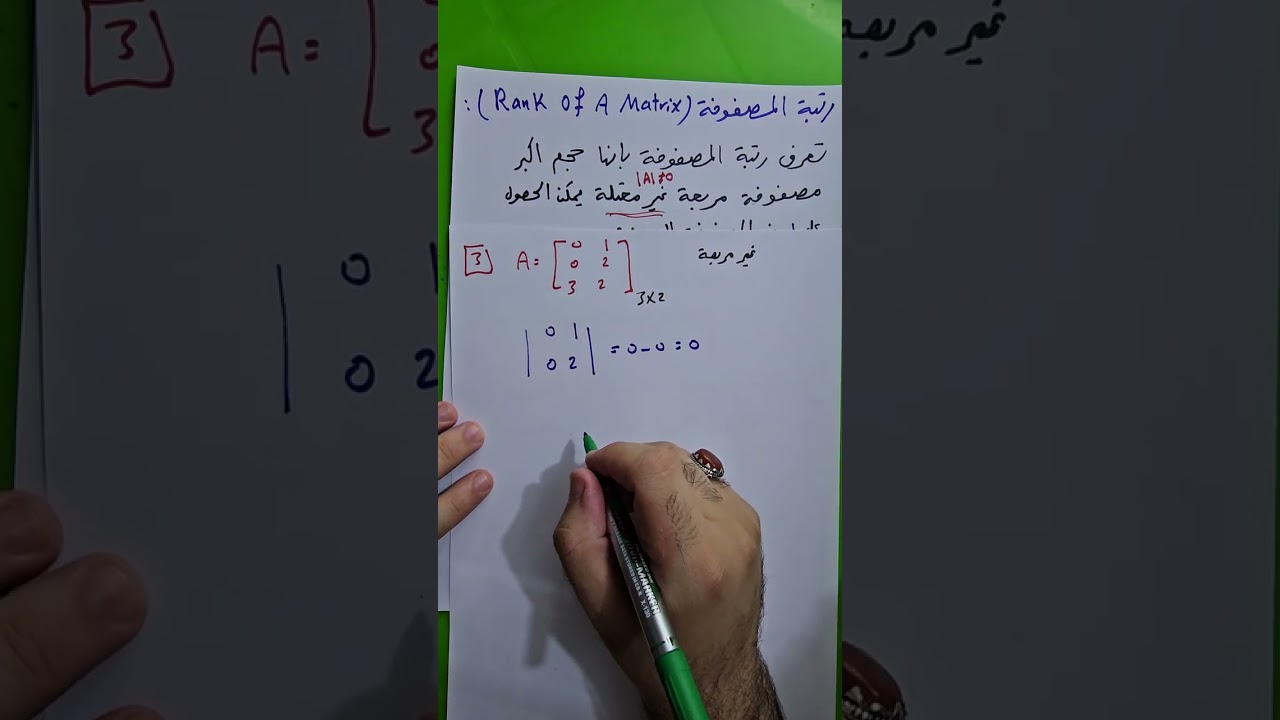 رتبة المصفوفة (Rank Of A Matrix) :
تعرف رتبة المصفوفة بانها حجم اكبر
|A|≠0
مصفوفة مربعة غير معتلة يمكن الحصول
3 A = [ 0 1 غير مربعة
0 2
3 2 ] 3x2
| 0 1
0 2 | = 0 - 0 = 0